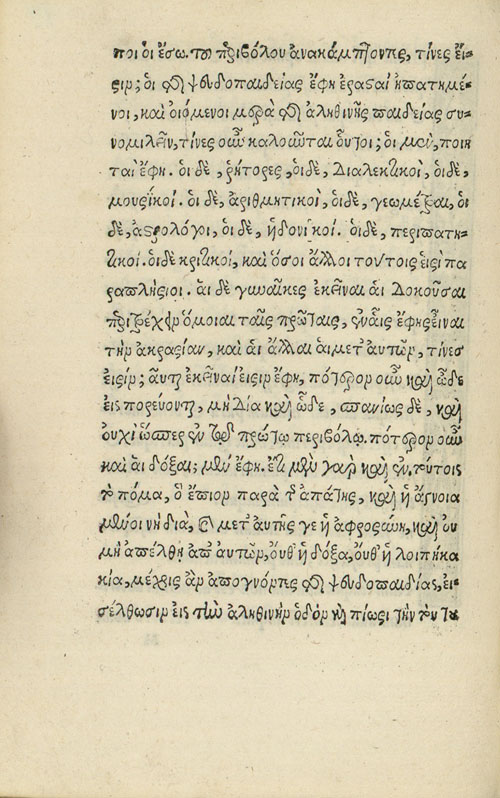 ποι ὁι ἔσω. τοῦ περιβόλου ἀνακάμπτοντες, τίνες ἔι-
σιν; ὁι τῆς ψευδοπαιδείας ἔφη ἐρασαὶ ἠπατημέ-
νοι, καὶ ὀιόμενοι μετὰ τῆς ἀληθινῆς παιδείας συ-
νομιλεῖν, τίνες οὖν καλοῦνται οὗτοι; ὁι μὲν, ποιη
ταὶ ἔφη. ὁι δὲ, ῥήτορες, ὁιδὲ, Διαλεκτικοὶ, ὁιδὲ,
μουσικοί. ὁι δὲ, ἀριθμητικοὶ, ὁιδὲ, γεωμέτραι, ὁι
δὲ, ἀστρολόγοι, ὁι δὲ, ἡδονικοί. ὁιδὲ, περιπατη-
τικοί. ὁιδὲ κριτικοί, καὶ ὅσοι ἄλλοι τούτοις ἐισὶ πα
ραπλήσιοι. ἁι δὲ γυναῖκες ἐκεῖναι ἁι Δοκοῦσαι
περιτρέχειν ὅμοιαι ταῖς πρώταις, ἐν αἷς ἔφης εἶναι
τὴν ἀκρασίαν, καὶ ἁι ἄλλαι ἁι μετ αὐτῶν, τίνες
ἐισίν; αὐταὶ ἐκεῖναί ἐισιν ἔφη, πότερον οὖν καὶ ὧδε
ἐις πορεύονται, μὴ Δία καὶ ὧδε, σπανίως δὲ, καὶ
ὀυχὶ ὥσπερ ἐν τῷ πρώτῳ περιβόλῳ. πότερον οὖν
καὶ ἁι δόξαι; μένει ἔφη. ἔτι μὲν γὰρ καὶ ἐν τούτοις
τὸ πόμα, ὃ ἔπιον παρὰ τῆς ἀπάτης, καὶ ἡ ἄγνοια
μένει νὴ διὰ, καὶ μετ αὐτῆς γε ἡ ἀφροσύνη, καὶ ὀυ
μὴ ἀπέλθῃ ἀπ αὐτῶν, ὄυθ ἡ δόξα, ὄυθ ἡ λοιπὴ κα
κία, μέχρις ἂν ἀπογνόντες τῆς ψευδοπαιδίας, ἐι-
σέλθωσιν ἐις τὴν ἀληθινὴν ὁδὸν καὶ πίωσι τὴν τούτω